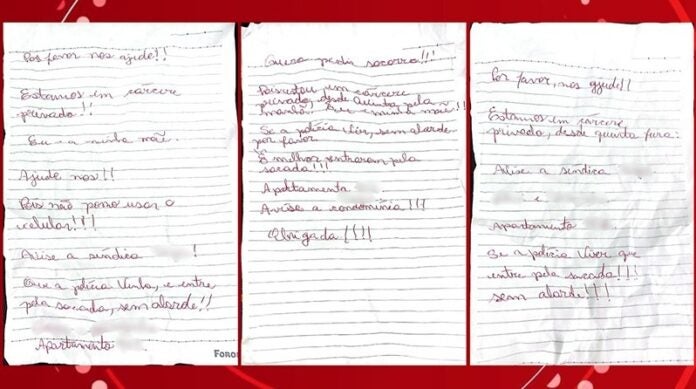 Por favor nos ajude!!
Estamos em cárcere
privado!!
Eu e a minha mãe.
Ajude nos!!
Pois não posso usar o
celular!!!
Avise a síndica !
Que a polícia venha, e entre
pela sacada, sem alarde!!
Apartamento
Foron
Quero pedir socorro!!!
em cárcere
privado, desde quinta pela
manhã. Eu e minha mãe!!
Se a polícia vier, sem alarde
por favor
É melhor entrarem pela
sacada!!!
Apartamento
Avise a condomínia!!!
Obrigada!!!!
Por favor, nos ajude!!
Estamos em cárcere
privado, desde quinta feira:
Avise a síndica
e
Apartamento
Se a polícia vier que
entre pela sacada!!!
sem alarde!!!